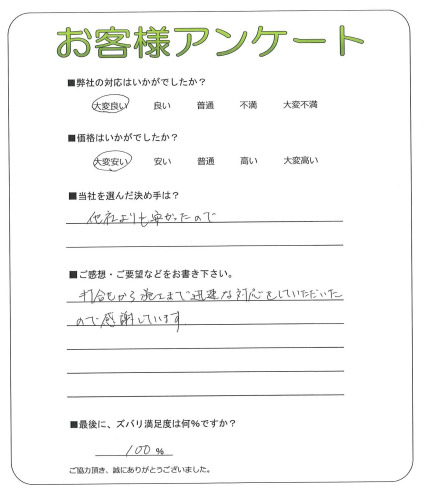 お客様アンケート
■弊社の対応はいかがでしたか？
大変良い 良い 普通 不満 大変不満
■価格はいかがでしたか？
大変安い 安い 普通 高い 大変高い
■当社を選んだ決め手は？
他社よりも安かったので
■ご感想・ご要望などをお書き下さい。
打合せから施工まで迅速な対応をしていただいた
ので感謝しています
■最後に、ズバリ満足度は何%ですか？
100 %
ご協力頂き、誠にありがとうございました。